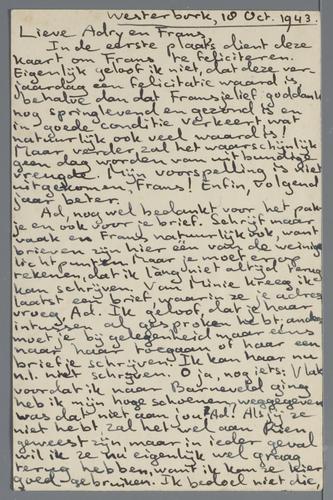 Westerbork, 18 Oct. 1943.
Lieve Adry en Frans,
In de eerste plaats dient deze
kaart om Frans te feliciteren.
Eigenlijk geloof ik niet, dat deze ver-
jaardag een felicitatie waard is
behalve dan dat Fransjelief goddank
nog springlevend en gezond is en
in goede conditie verkeert wat
natuurlijk ook veel waard is!
Maar verder zal het waarschijnlijk
geen dag worden van uitbundige
vreugde. Mijn voorspelling is niet
uitgekomen, Frans! Enfin, volgend
jaar beter.
Ad, nog wel bedankt voor het pak-
je en ook voor je brief. Schrijf maar
vaak en Frans natuurlijk ook, want
brieven zijn hier één van de weinige
lichtpunten. Maar je moet erop
rekenen, dat ik lang niet altijd terug
kan schrijven. Van Minie kreeg ik
laatst een brief, waarin ze je adres
vroeg, Ad. Ik geloof, dat je haar
intussen al gesproken hebt, anders
moet je bij gelegenheid maar eens
naar haar toegaan of haar een
briefje schrijven. Ik kan haar nu
n.l. niet schrijven. O ja, nog iets: Vlak
voordat ik naar Barneveld ging
heb ik mijn hoge schoenen weggegeven
was dat niet aan jou, Ad? Als jij ze
niet hebt, zal het wel aan Fien
geweest zijn, maar in ieder geval
wil ik ze nu eigenlijk wel graag
terug hebben, want ik kan ze hier
goed gebruiken. Ik bedoel niet die,